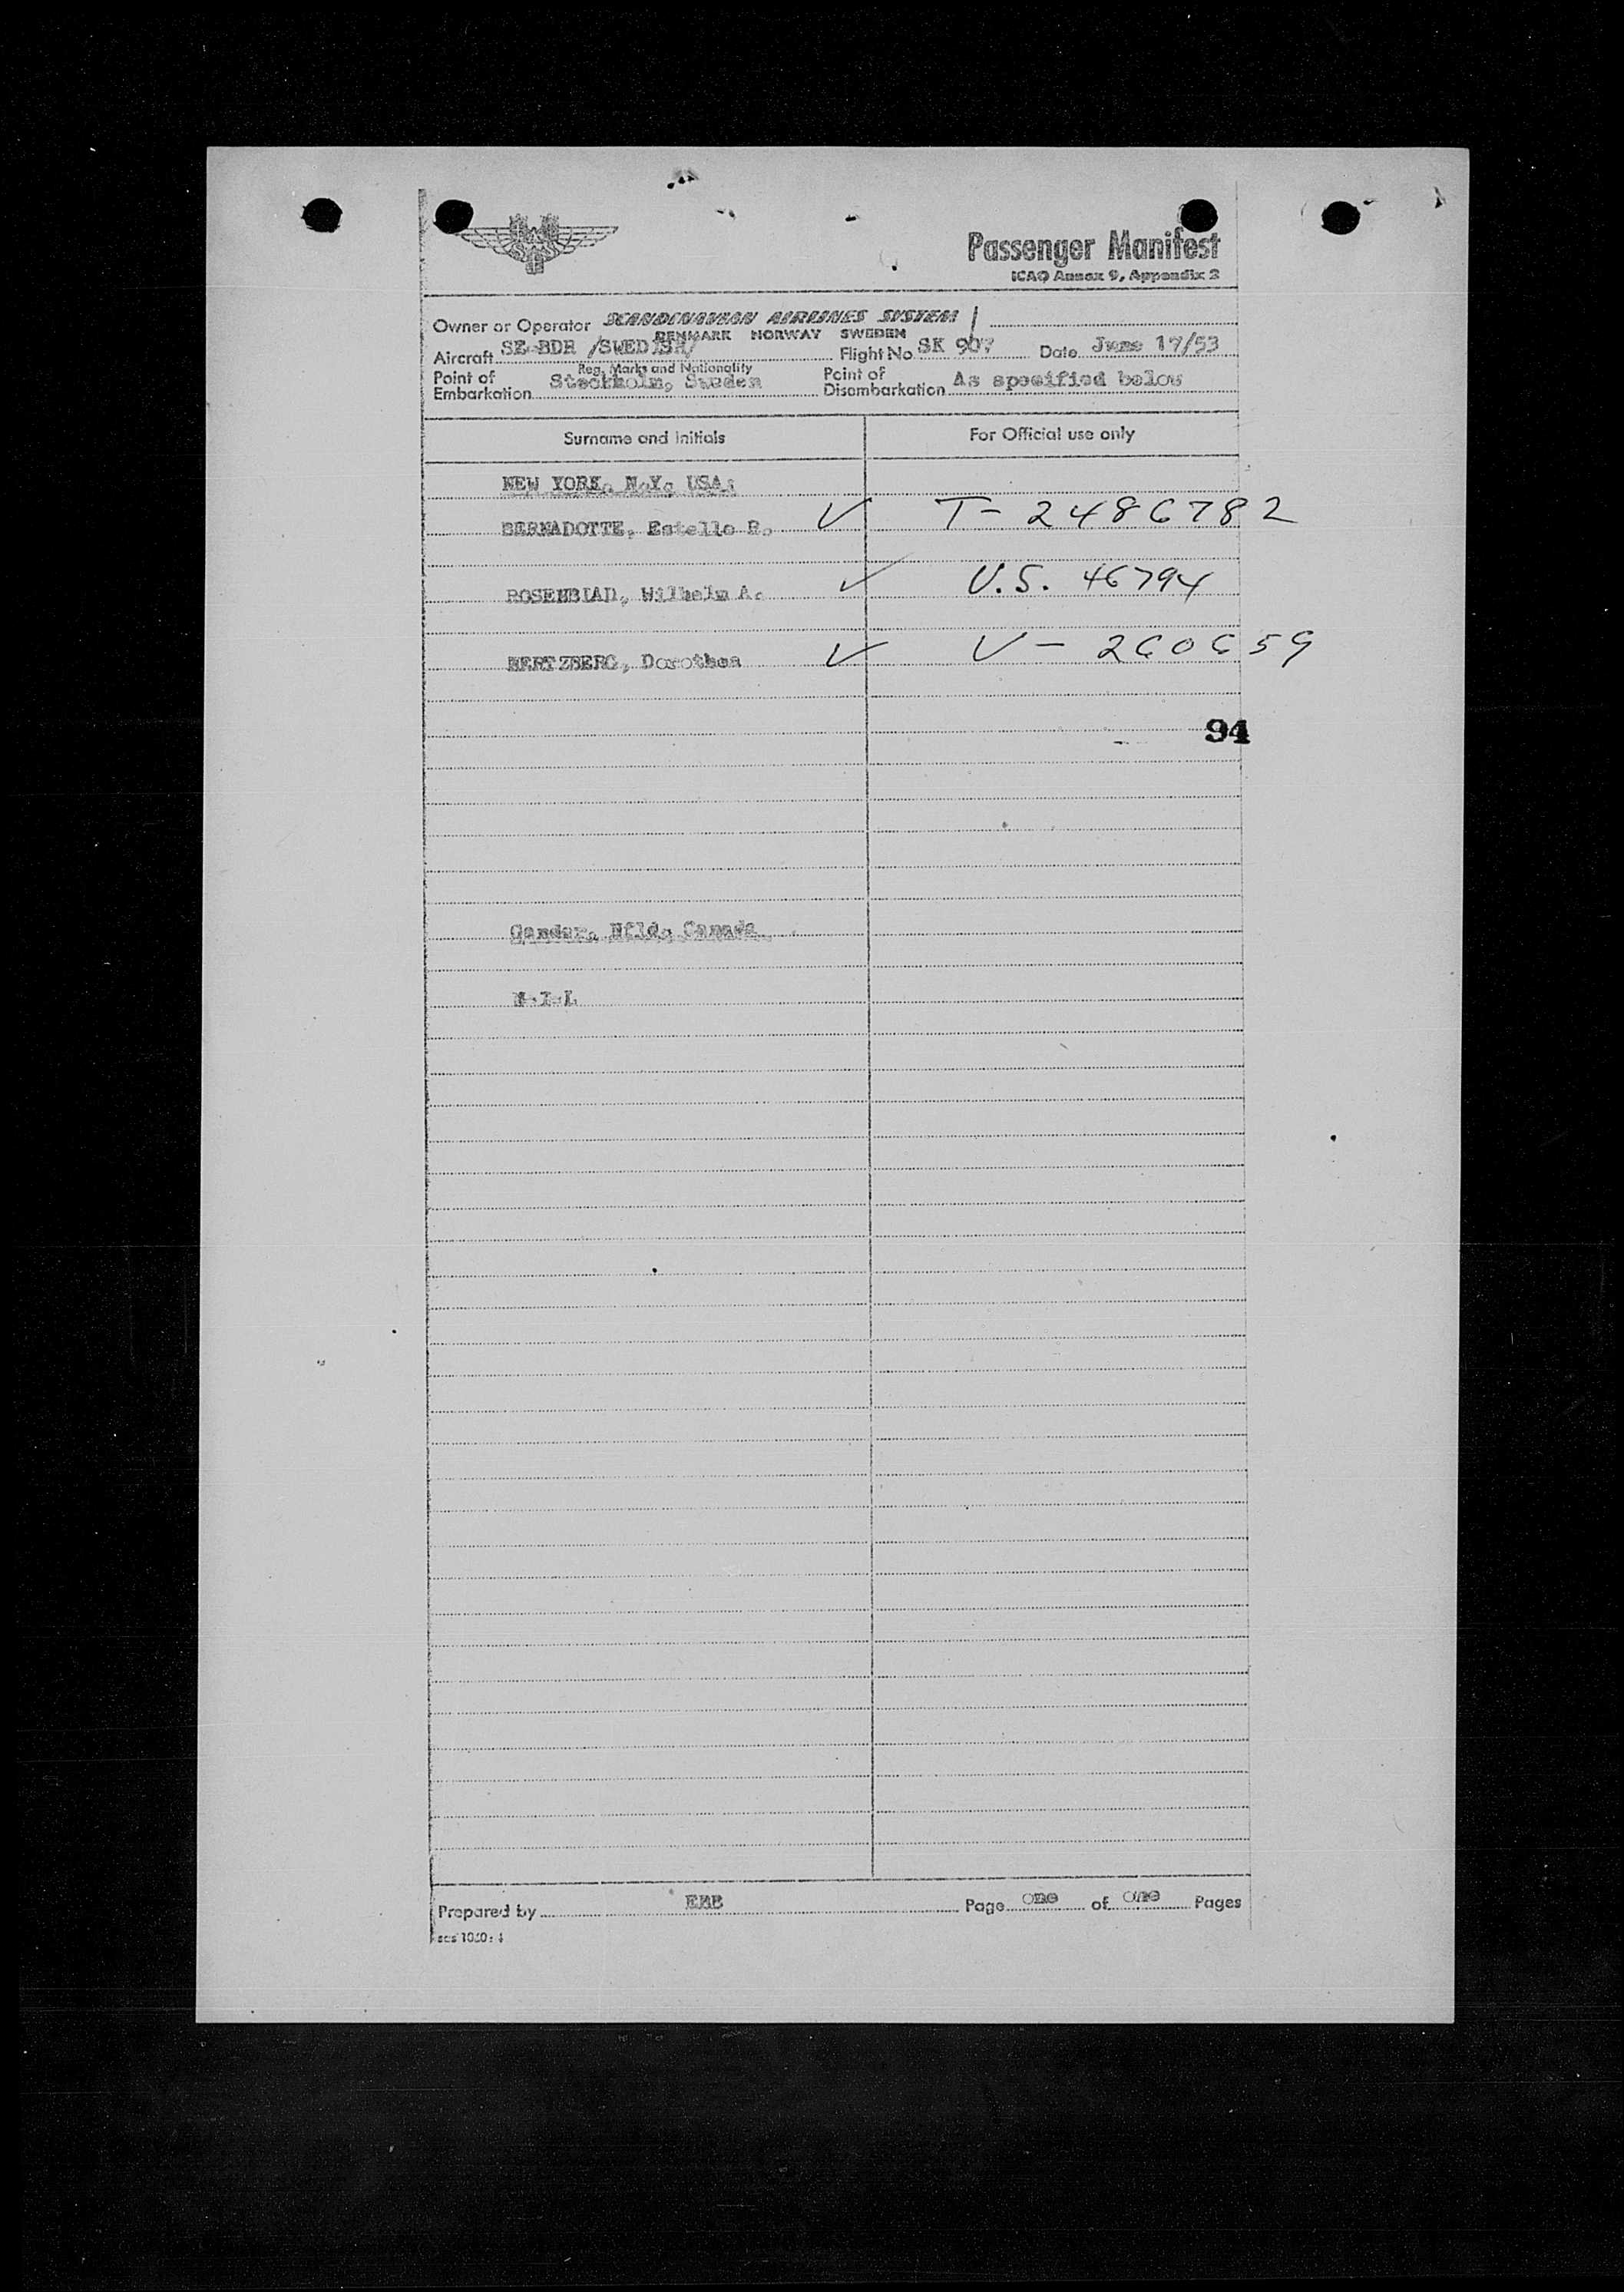 Passenger Manifest
ICAO Annex 9, Appendix 2
Owner or Operator SCANDINAVIAN AIRLINES SYSTEM
DENMARK NORWAY SWEDEN
Aircraft SE-BDR /SWEDISH/ Flight No SK 907 Date June 17/53
Reg. Marks and Nationality
Point of Embarkation Stockholm, Sweden Point of Disembarkation As specified below
Surname and Initials For Official use only
NEW YORK, N.Y. USA:
BERNADOTTE, Estelle R. ✓ T- 2486782
ROSENBLAD, Wilhelm A. ✓ U.S. 46794
HERTZBERG, Dorothea ✓ V- 260659
94
Gander, Nfld, Canada
N-I-L
Prepared by Page one of one Pages